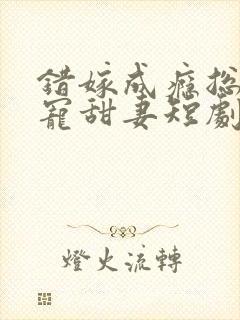 錯嫁成癮总
寵甜妻短劇
燈火流轉